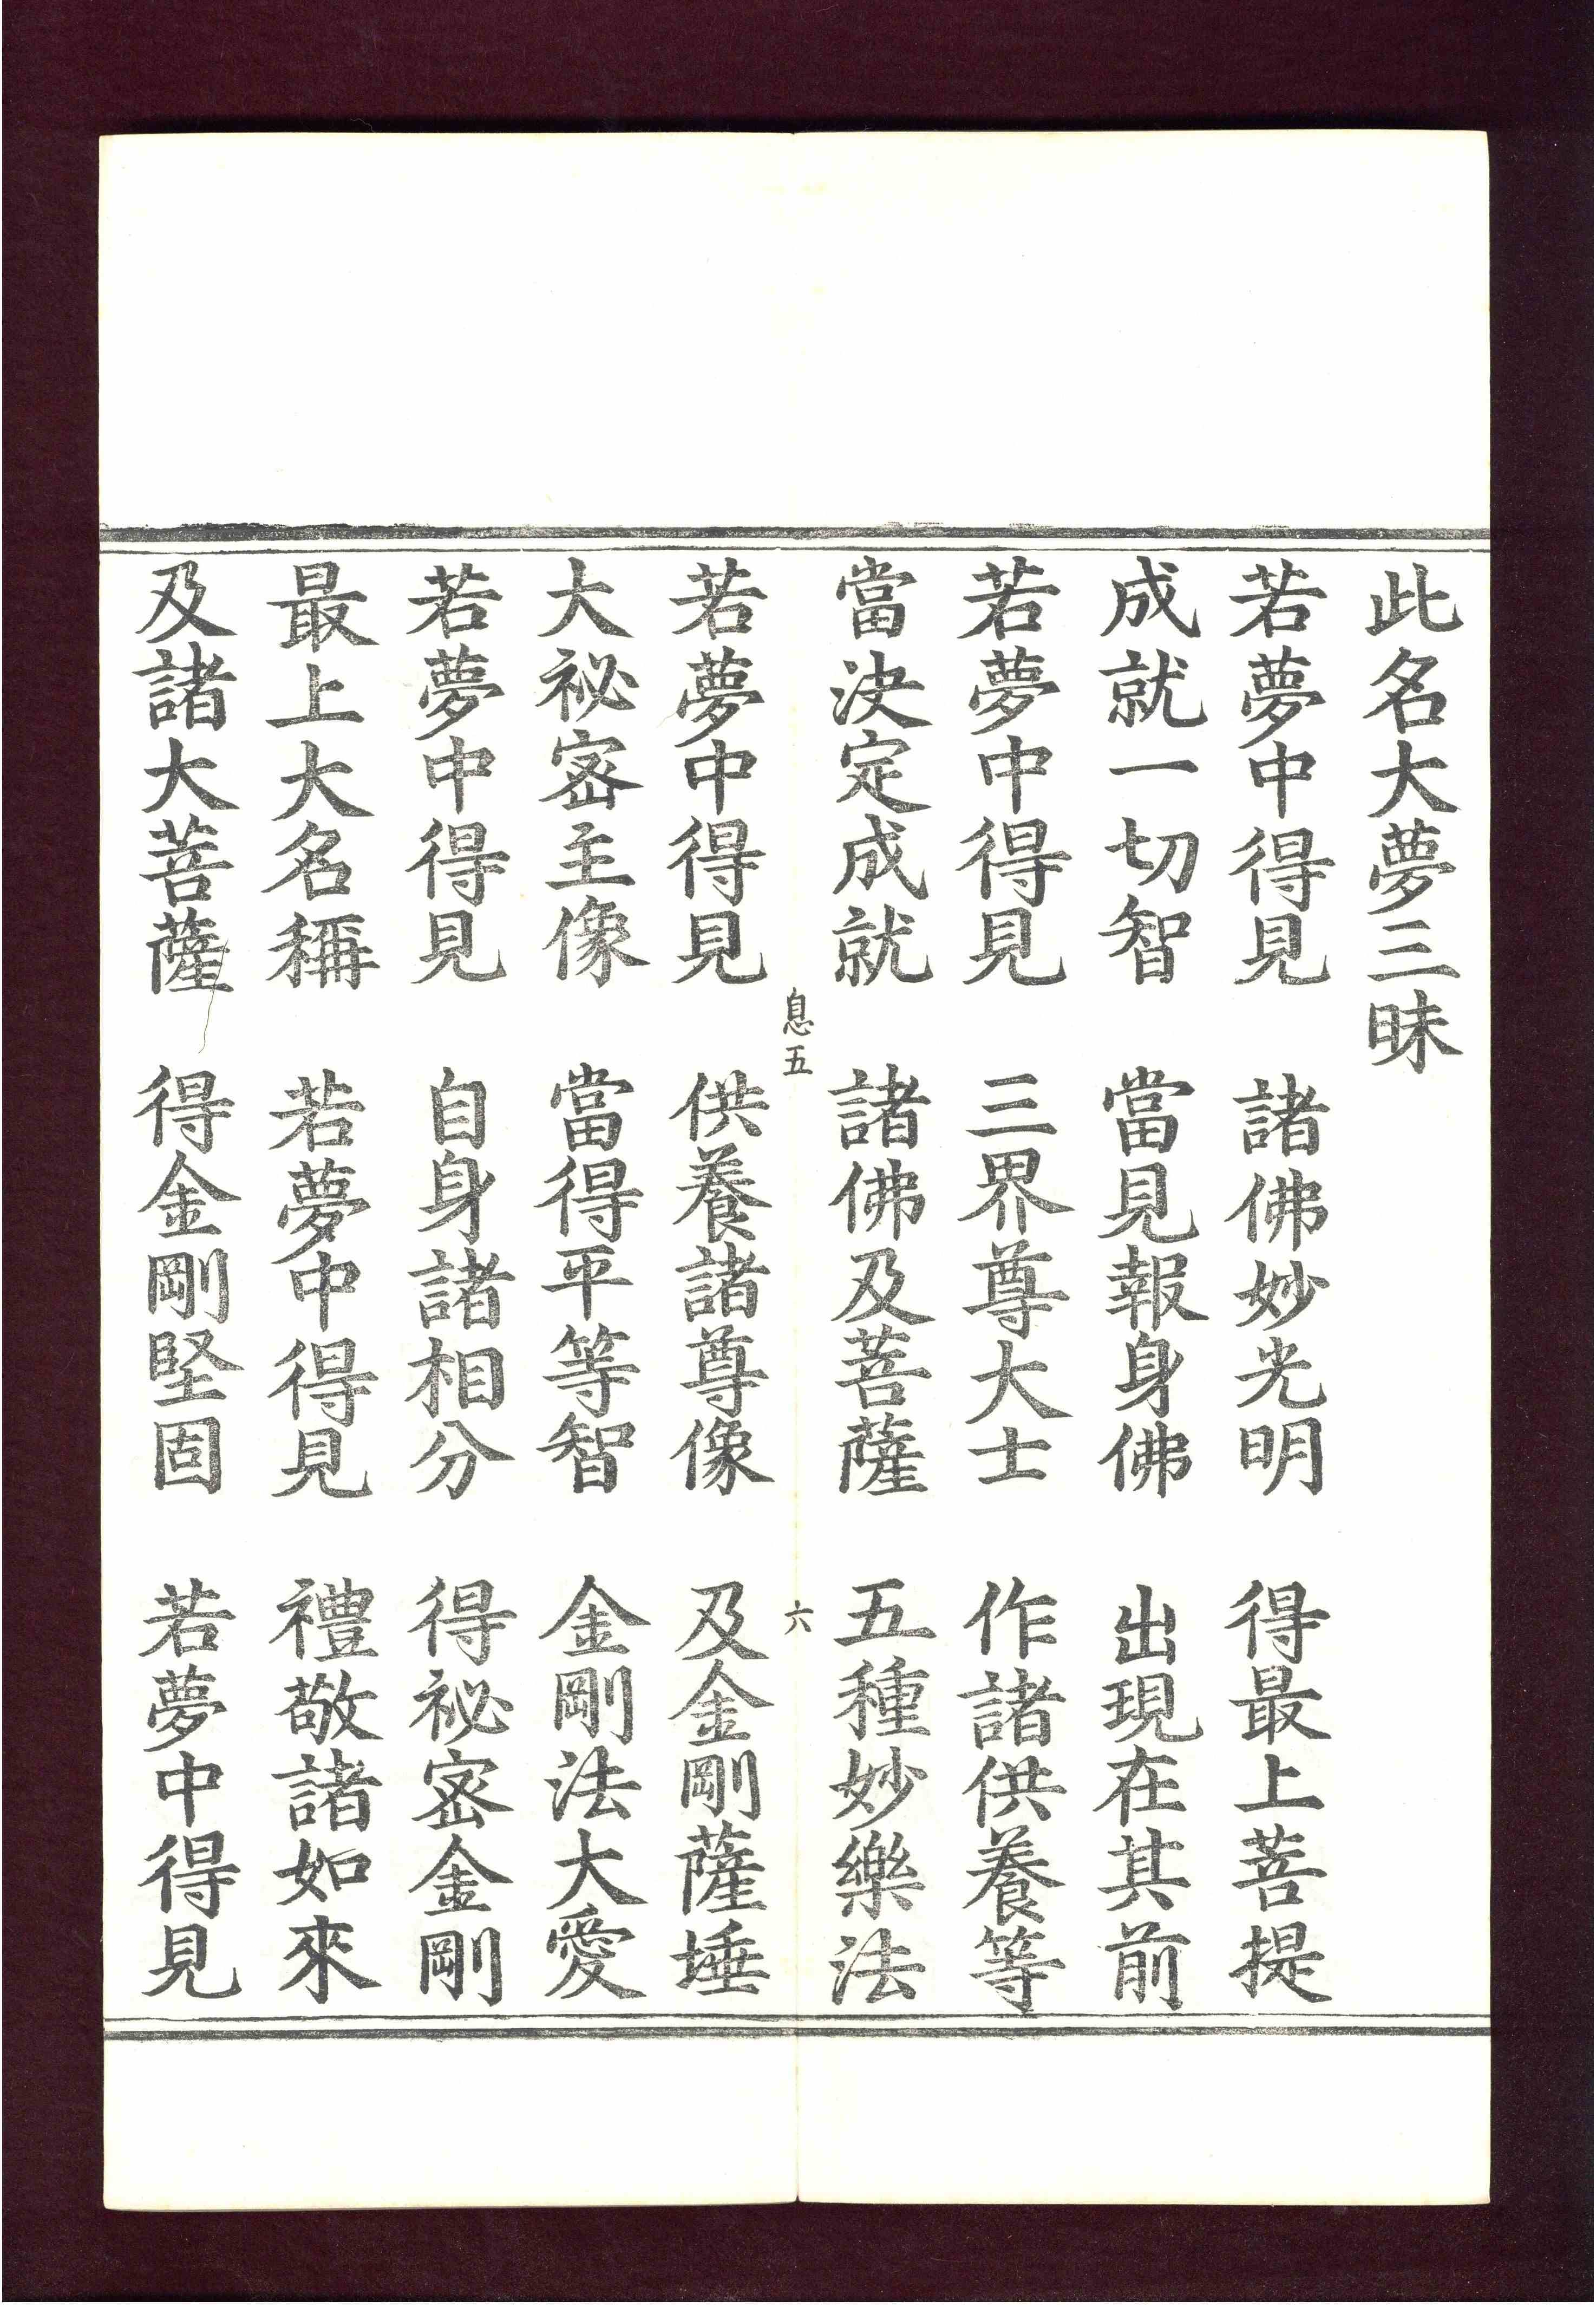 此名大夢三昧
若夢中得見　諸佛妙光明　得最上菩提
成就一切智　當見報身佛　出現在其前
若夢中得見　三界尊大士　作諸供養等
當決定成就　諸佛及菩薩　五種妙樂法
息五　六
若夢中得見　供養諸尊像　及金剛薩埵
大祕密主像　當得平等智　金剛法大愛
若夢中得見　自身諸相分　得祕密金剛
最上大名稱　若夢中得見　禮敬諸如來
及諸大菩薩　得金剛堅固　若夢中得見